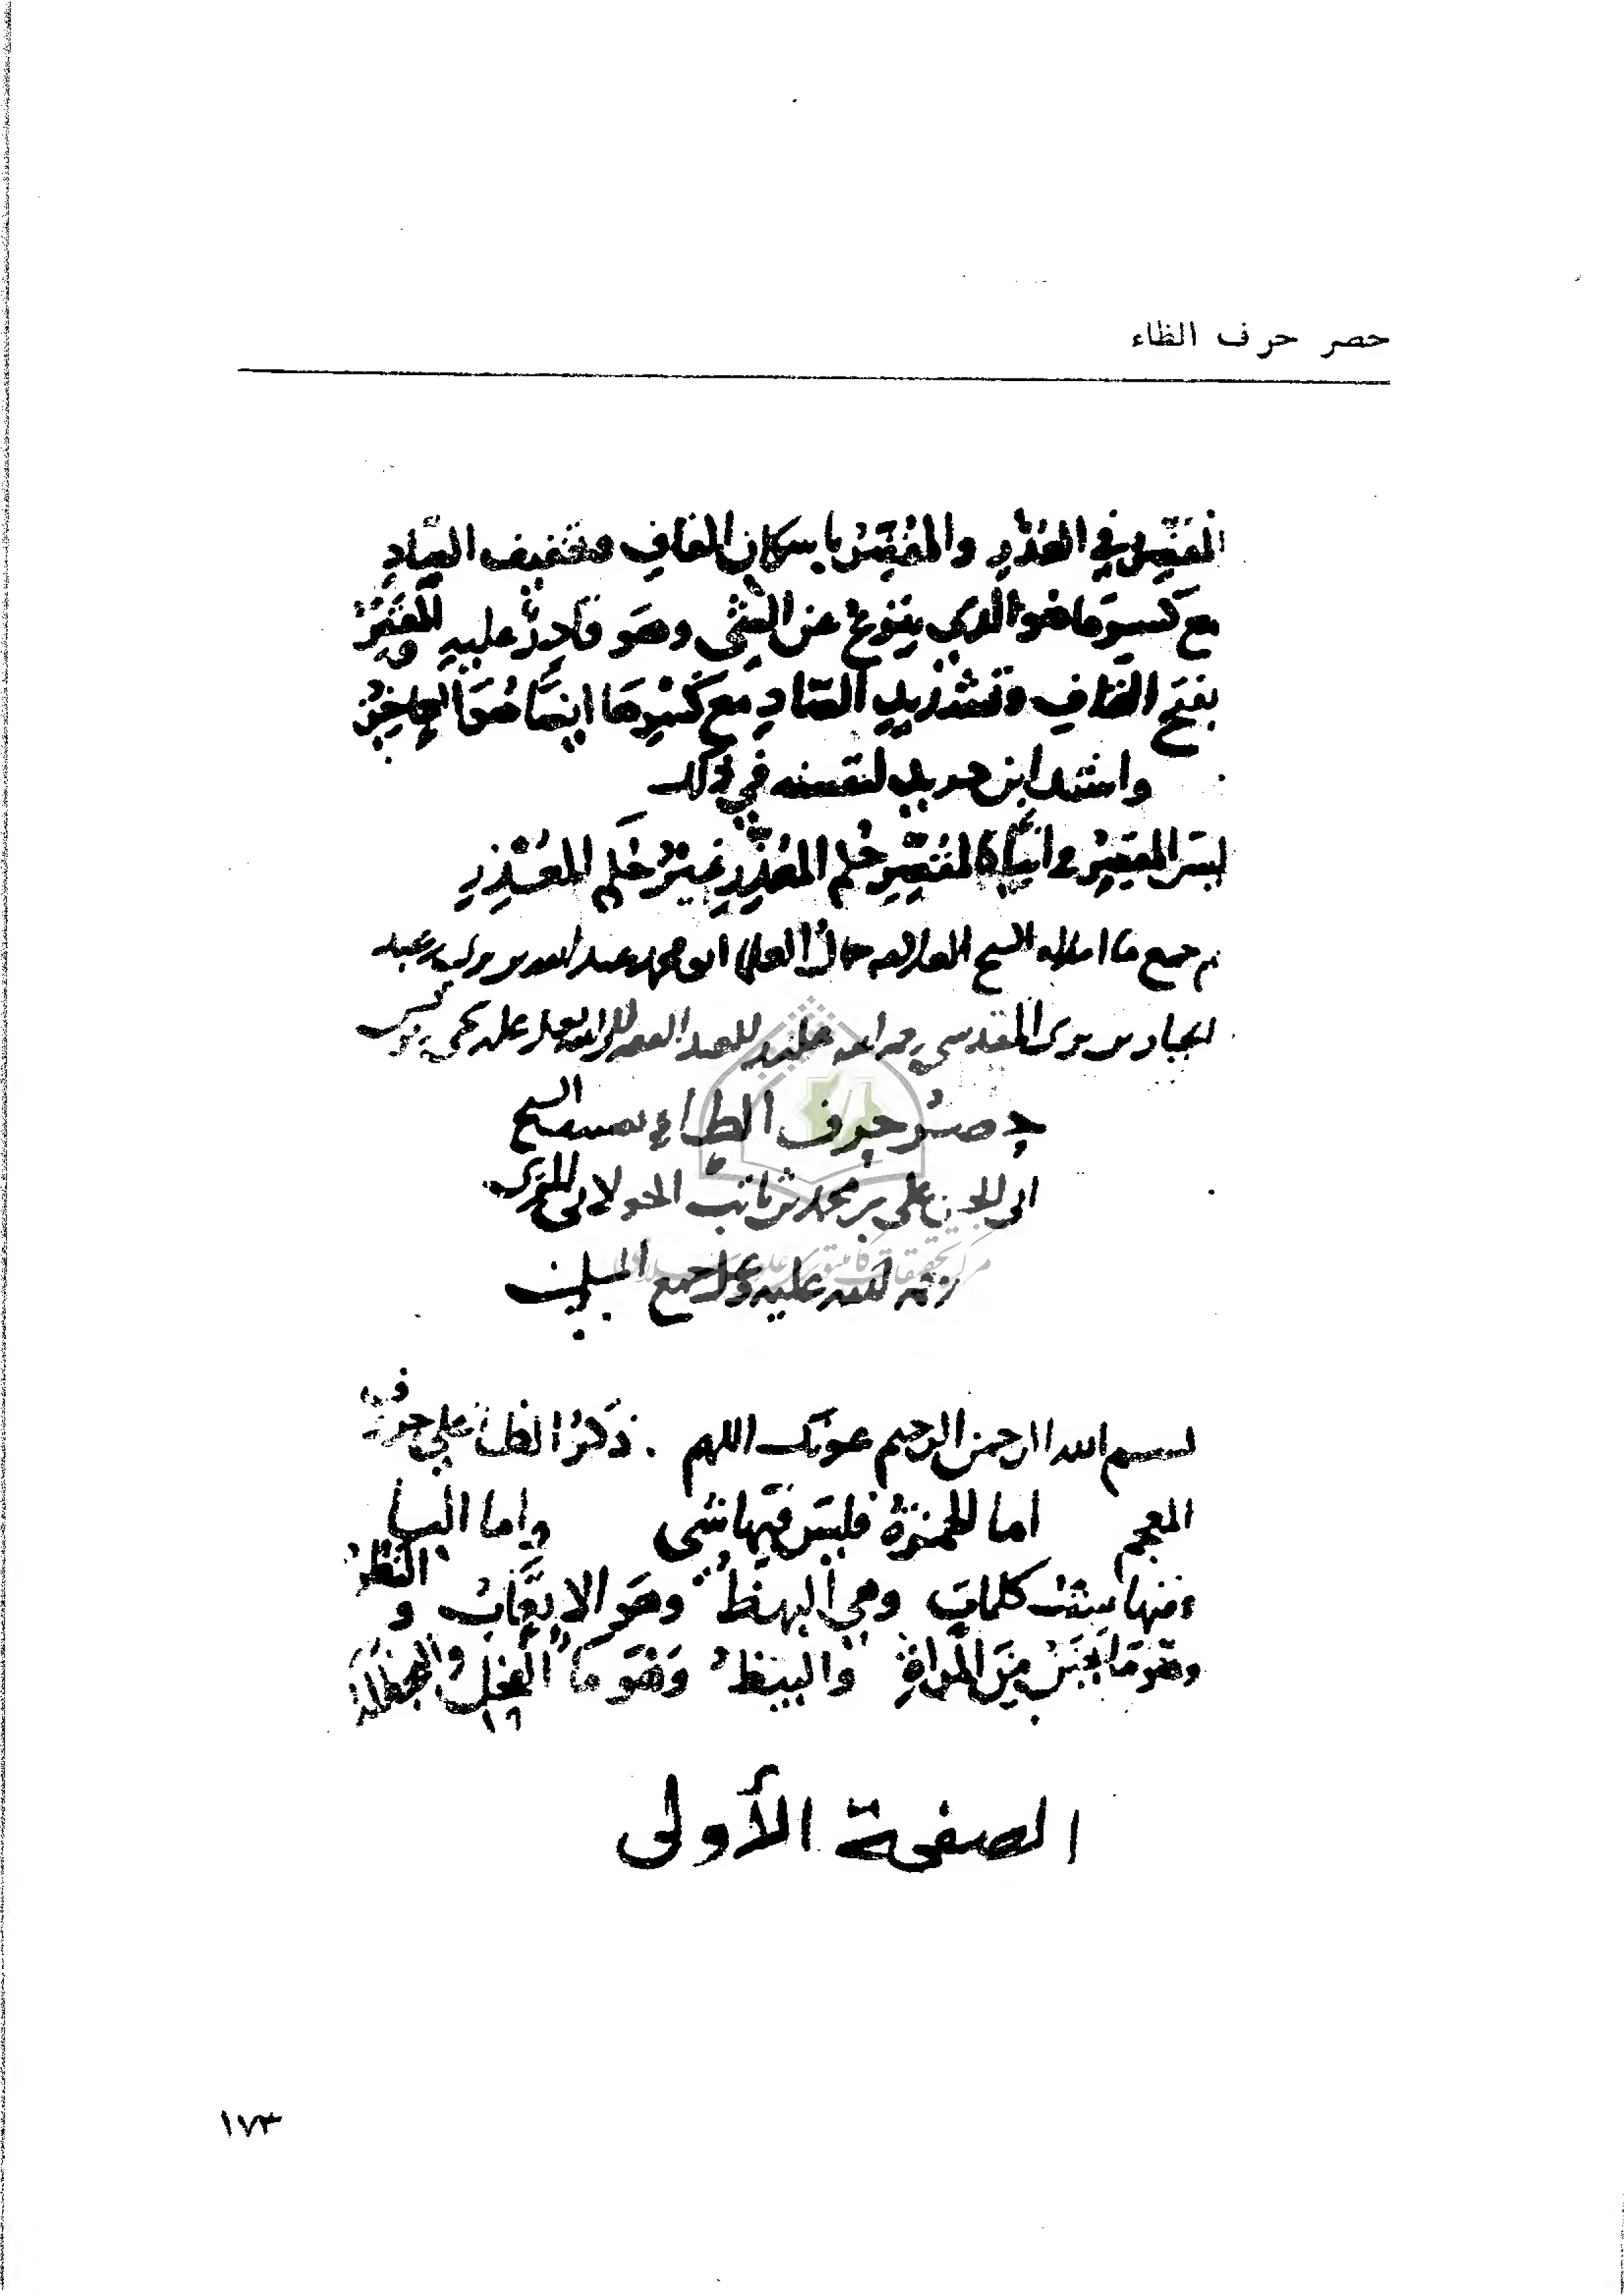 حصر حرف الظاء
المقصر في العذر والمقصر باسكان القاف وتخفيف الصاد
مع كسرها هو الذي ينزع عن الشي وهو قادر عليه والمقصر
بفتح القاف وتشديد الصاد مع كسرها ايضا هو العاجز
وانشد ابن دريد لنفسه في ذلك
ليس المقصر وانيا كالمقصر حكم المعذر غير حكم المعذر
جميع ما املاه الشيخ ابو محمد عبد الله بن بري بن عبد
الجبار بن بري المقدسي رحمه الله
حصر حرف الظاء تصنيف الشيخ
ابي الحسن علي بن محمد بن ثابت الخولاني المهدي
رحمة الله عليه وعلى جميع المسلمين
بسم الله الرحمن الرحيم عونك اللهم . ذكر الظاء على حروف
المعجم اما الهمزة فليس فيها شي واما البا
فمنها ست كلمات وهي البهظ وهو الاتعاب و البظر
وهو ما يختن من المراة والبيظ وهو ما الفحل
الصفحة الأولى
١٧٣